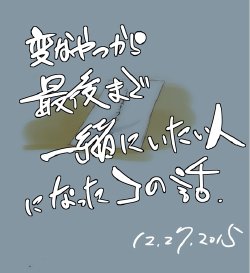 変なやつから
最後まで
一緒にいたい人
になったコの話.
12.27.2015